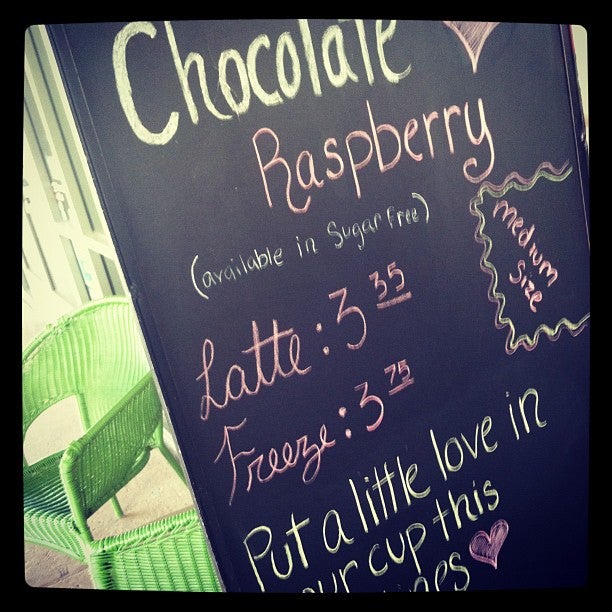 Chocolate
Raspberry
(available in Sugar Free)
Medium
Size
Latte: 3 35
Freeze: 3 75
Put a little love in
cup this